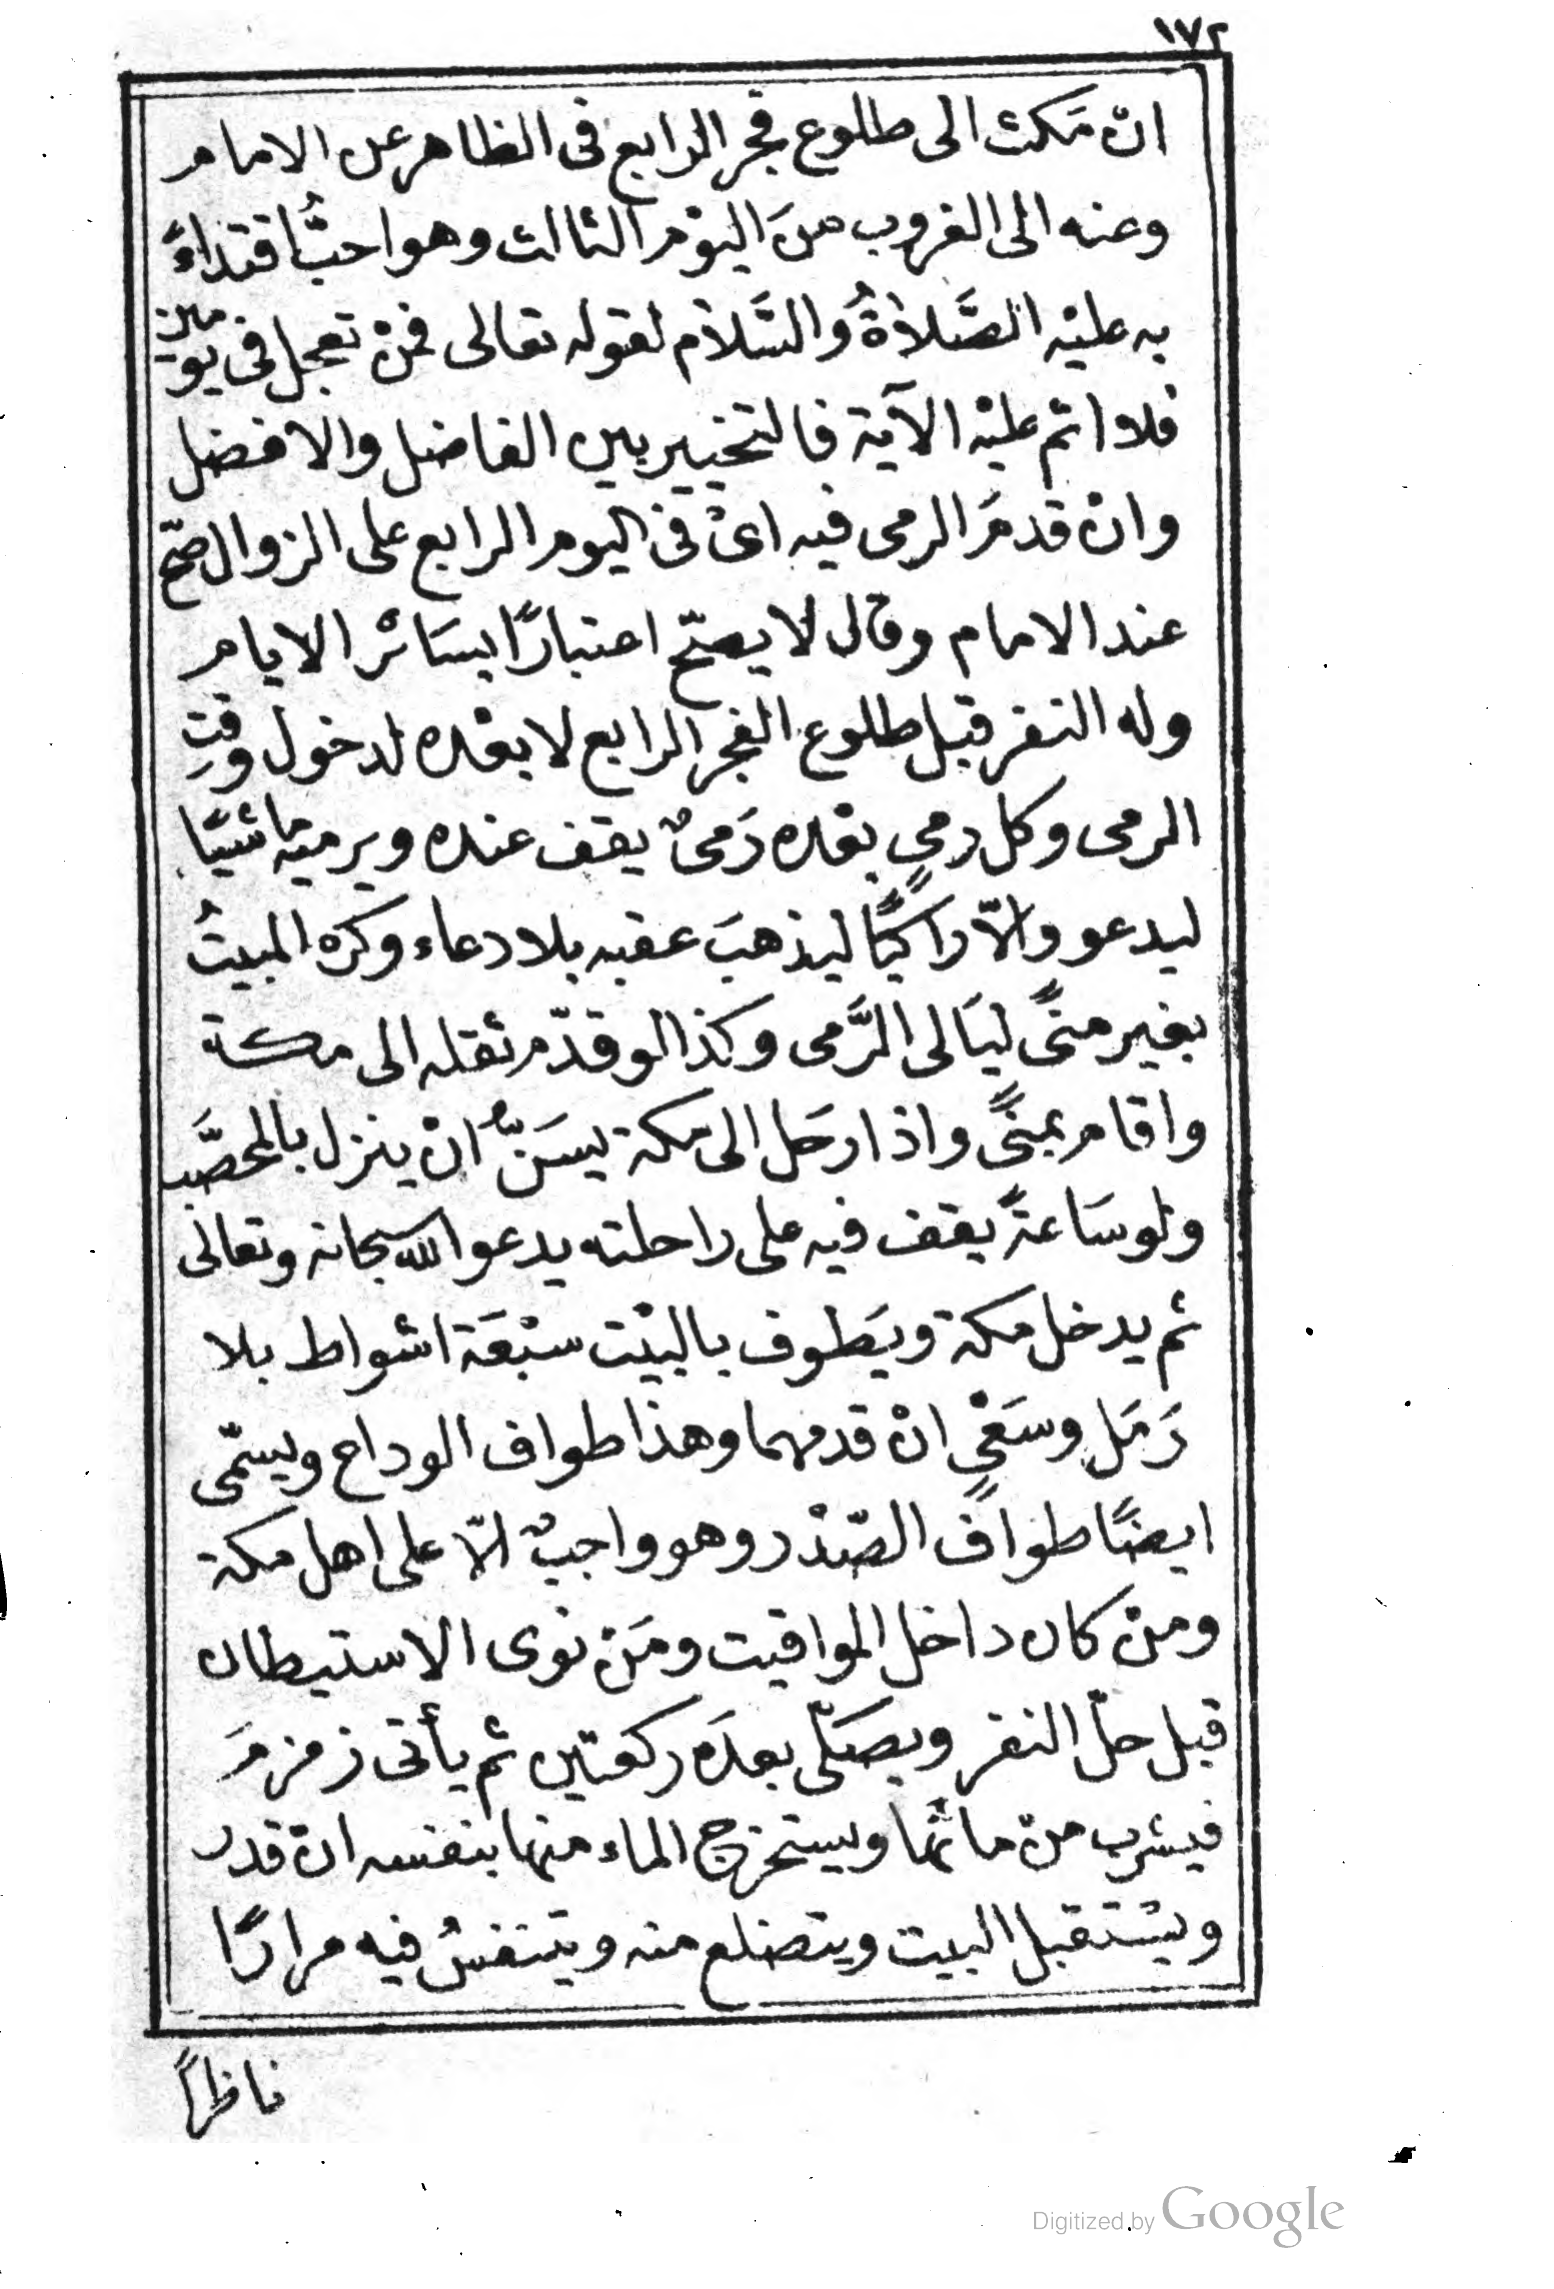 ١٧٢
ان مَكث الى طلوع فجر الرابع فى الظاهر عن الامام
وعنه الى الغروب منَ اليوْم الثالث وهو احبُّ اقتداءً
به عليْه الصَّلاةُ والسَّلام لقوله تعالى فمنْ تعجل فى يومين
فلا اثم عليْه الآية فالتخيير بين الفاضل والافضل
وانْ قدمَ الرمى فيه اىْ فى اليوم الرابع على الزوال صحّ
عند الامام وقالا لا يصحّ اعتبارًا بسَائر الايام
وله النفر قبل طلوع الفجر الرابع لا بعْده لدخول وقتِ
الرمى وكل رمي بعْده رَمىٌ يقف عنده ويرميه ماشيًا
ليدعو والاّ راكبًا ليذهبَ عقبه بلا دعاء وكره المبيتُ
بغير منىً ليَالى الرَّمى وكذا لو قدّم ثقله الى مكة
واقام بمنىً واذا رحَل الى مكة يسَنُّ انْ ينزل بالمحصَّب
ولو سَاعةً يقف فيه على راحلته يدعو الله سبحانه وتعالى
ثم يدخل مكة ويَطوف بالبيْت سبْعَة اشواط بلا
رَمَل وسَعْيٍ انْ قدمهما وهذا طواف الوداع ويسمّى
ايضًا طوافَ الصّدْر وهو واجبٌ الاّ على اهل مكة
ومنْ كان داخل المواقيت ومَنْ نوى الاستيطان
قبل حلّ النفر ويصَلّى بعدَه ركعتين ثم يأتى زمزمَ
فيشرب منْ مائها ويستخرج الماء منها بنفسه ان قدر
ويسْتقبل البيت ويتضلع منه ويتنفسُ فيه مرارًا
ناظراً
Digitized by Google